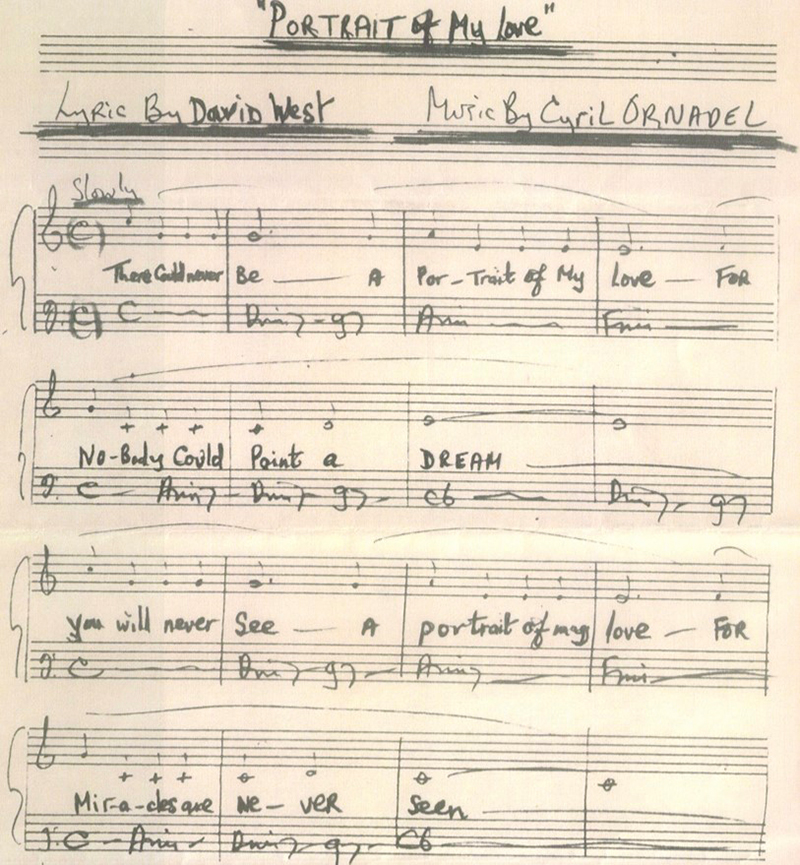 "PORTRAIT of My Love"
Lyric By David West Music By Cyril ORNADEL
Slowly
There Could never Be — A Por-Trait of My Love — FOR
C Dmi7 - g7 Ami Fmi
No-Body Could Paint a DREAM
C Ami7 Dmi7 g7 C6 Dmi7 g7
you will never See — A portrait of my love — FOR
C Dmi7 g7 Ami7 Fmi
Mir-a-cles are Ne-ver Seen
C - Ami - Dmi7 g7 C6